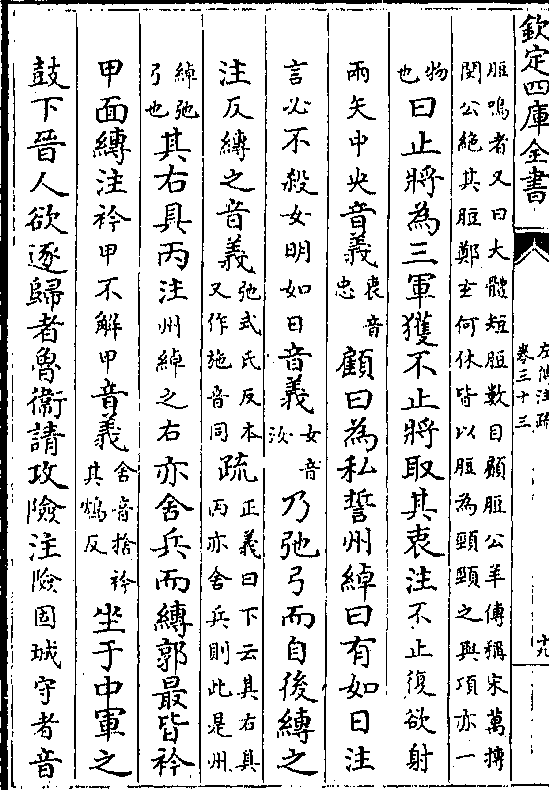 欽定四庫全書
左傳注疏
卷三十三
十九
脰鳴者又曰大體短脰數目顧脰公羊傳稱宋萬搏
閔公絶其脰鄭玄何休皆以脰為頸頸之與項亦一
物
也曰止將為三軍獲不止將取其衷注不止復欲射
兩矢中央音義衷音
忠顧曰為私誓州綽曰有如日注
言必不殺女明如日音義女音
汝乃弛弓而自後縛之
注反縛之音義弛式氏反本
又作施音同疏正義曰下云其右具
丙亦舍兵則此是州
綽弛
弓也其右具丙注州綽之右亦舍兵而縛郭最皆衿
甲面縛注衿甲不解甲音義舍音捨衿
其鴆反坐于中軍之
鼓下晉人欲逐歸者魯衛請攻險注險固城守者音